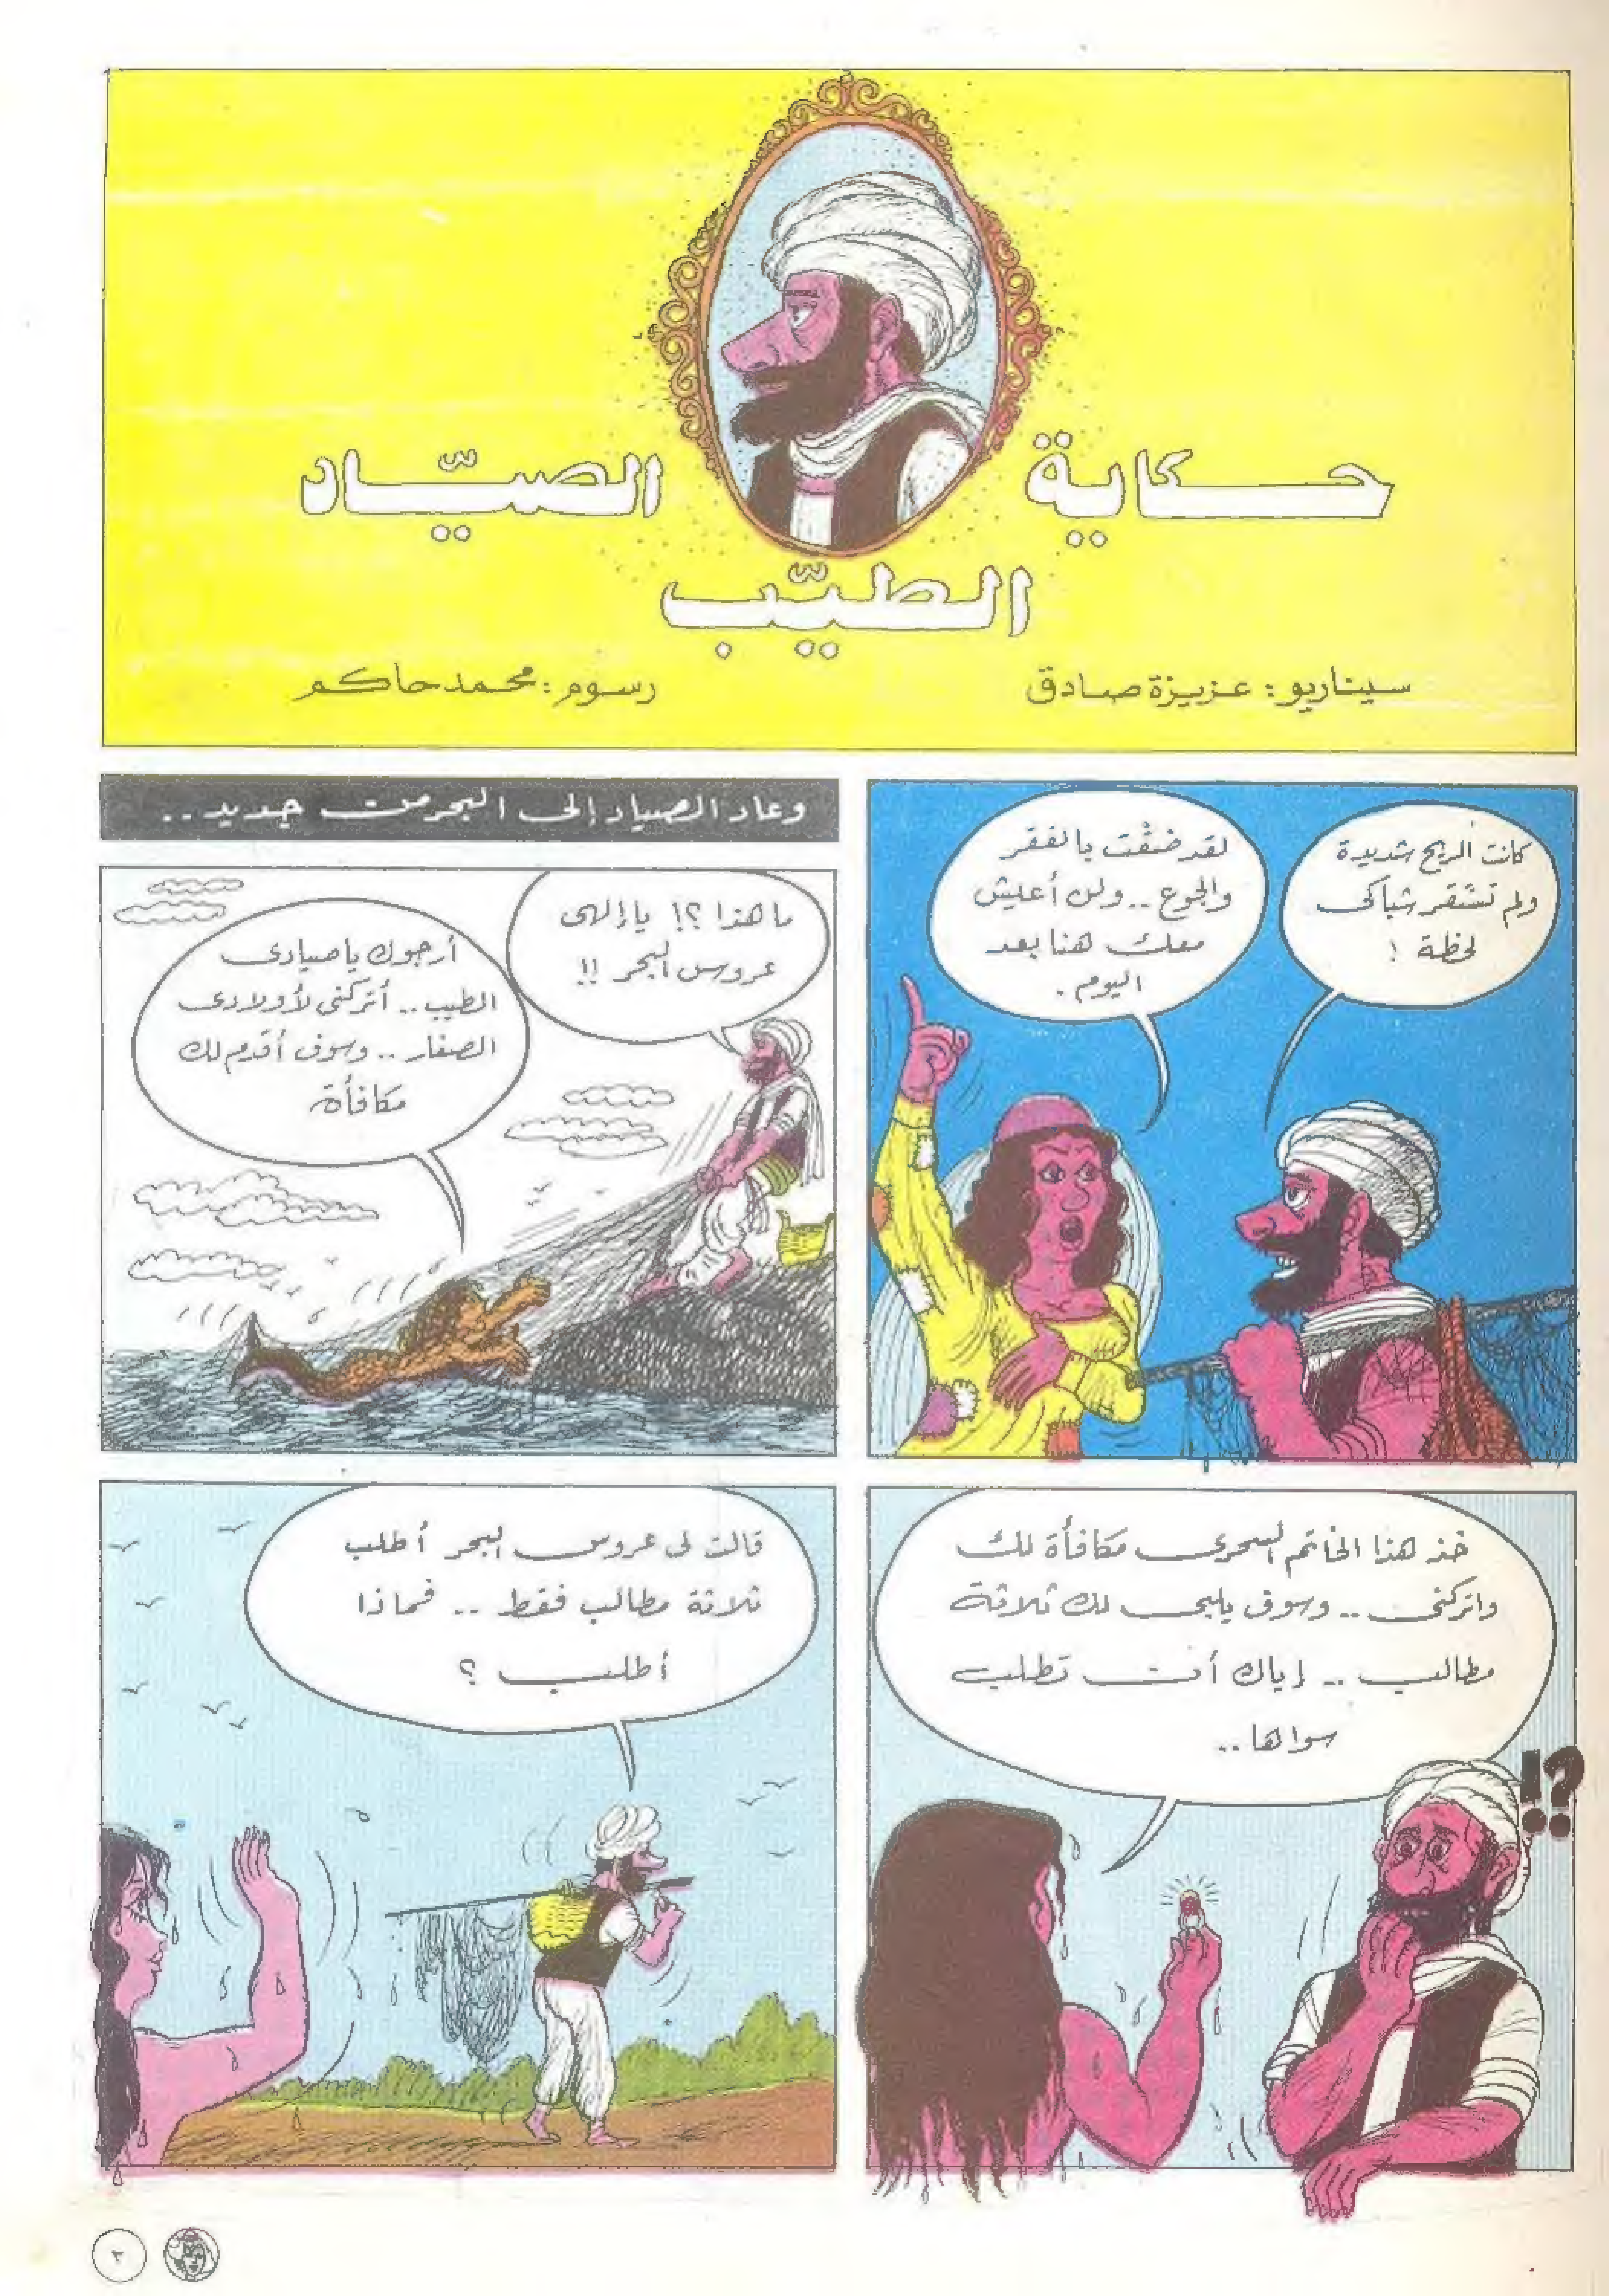 حكاية الصيّاد
الطيّب
سيناريو : عزيزة صادق
رسوم : محمد حاكم
كانت الريح شديدة
ولم تستقر شباكى
لحظة !
لقد ضقت بالفقر
والجوع .. ولن أعيش
معك هنا بعد
اليوم .
وعاد الصياد إلى البحر من جديد ..
ما هذا ؟! يا إلهى
عروس البحر !!
أرجوك يا صيادى
الطيب .. أتركنى لأولادى
الصغار .. وسوف أقدم لك
مكافأة
خذ هذا الخاتم السحرى مكافأة لك
واتركنى .. وسوف يلبى لك ثلاثة
مطالب .. إياك أن تطلب
سواها ..
!?
قالت لى عروس البحر أطلب
ثلاثة مطالب فقط .. فماذا
أطلب ؟